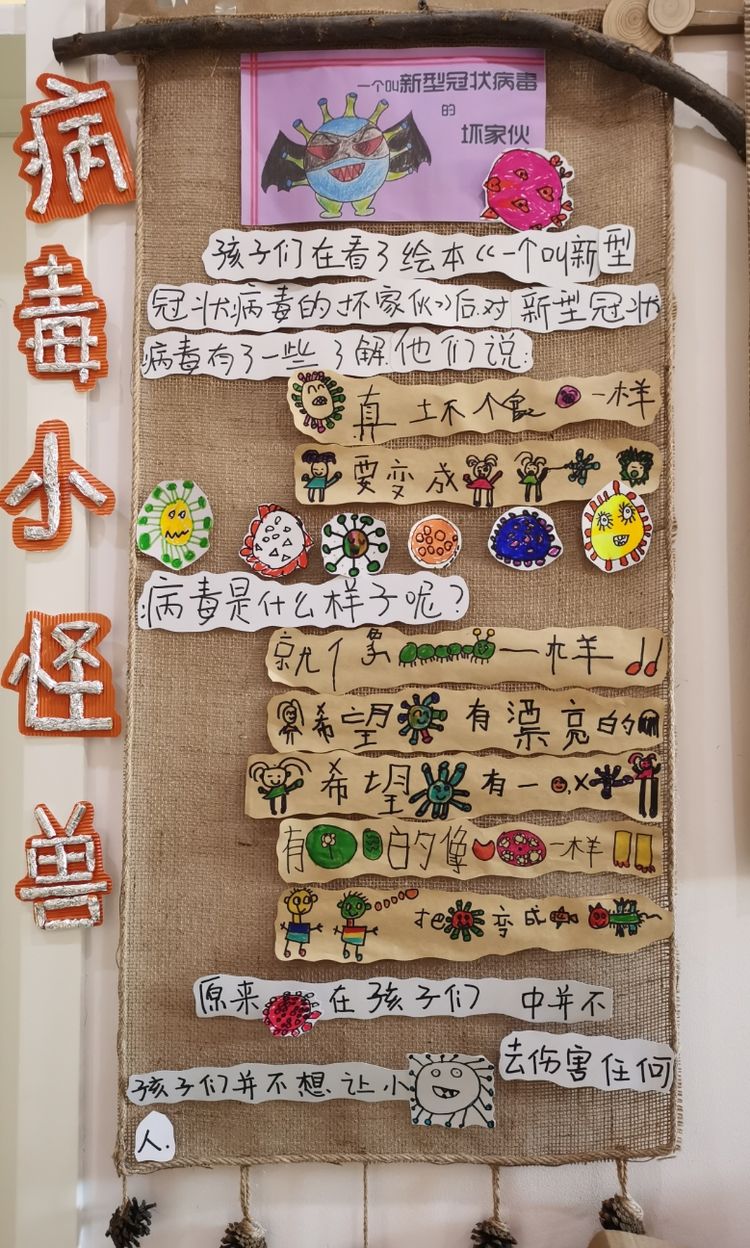 病毒小怪兽
一个叫新型冠状病毒
的
坏家伙
孩子们在看了绘本《一个叫新型
冠状病毒的坏家伙》后对新型冠状
病毒有了一些了解.他们说:
真坏个像一样
要变成
病毒是什么样子呢?
就像一样
希望有漂亮的
希望有一
有的像一样
把变成
原来在孩子们中并不
去伤害任何
孩子们并不想让小
人.